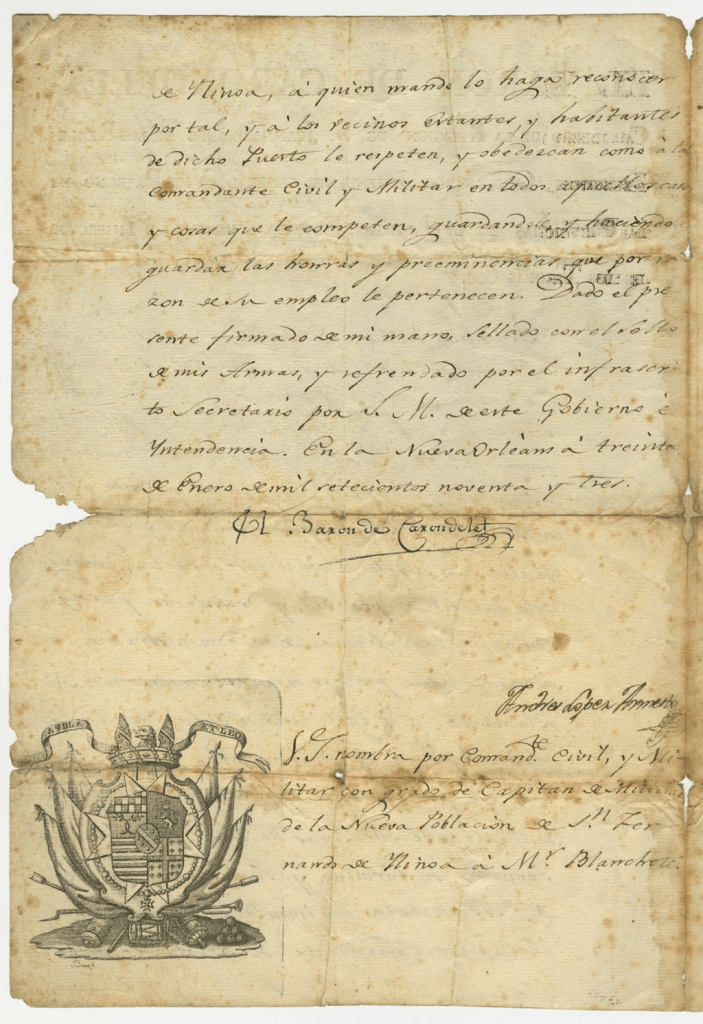 de Ninoa, á quien mando lo haga reconocer
por tal, y á los vecinos Estantes, y habitantes
de dicho Puerto le respeten, y obedezcan como a tal
Comandante Civil y Militar en todos aquellos casos
y cosas que le competen, guardandole, y haciendo
guardar las honrras y preeminencias que por ra
zon de su empleo le pertenecen. Dado el pre
sente firmado de mi mano, sellado con el sello
de mis Armas, y refrendado por el infrascri
to Secretario por S. M. de este Gobierno é
Yntendencia. En la Nueva Orleans á treinta
de Enero de mil setecientos noventa y tres.
El Baron de Carondelet
Andres López Armesto
V. S. nombra por Comand.te Civil, y Mi
litar con grado de Capitan de Milicias
de la Nueva Poblacion de S.n Fer
nando de Ninoa á M.r Blanchete.
ET LEO